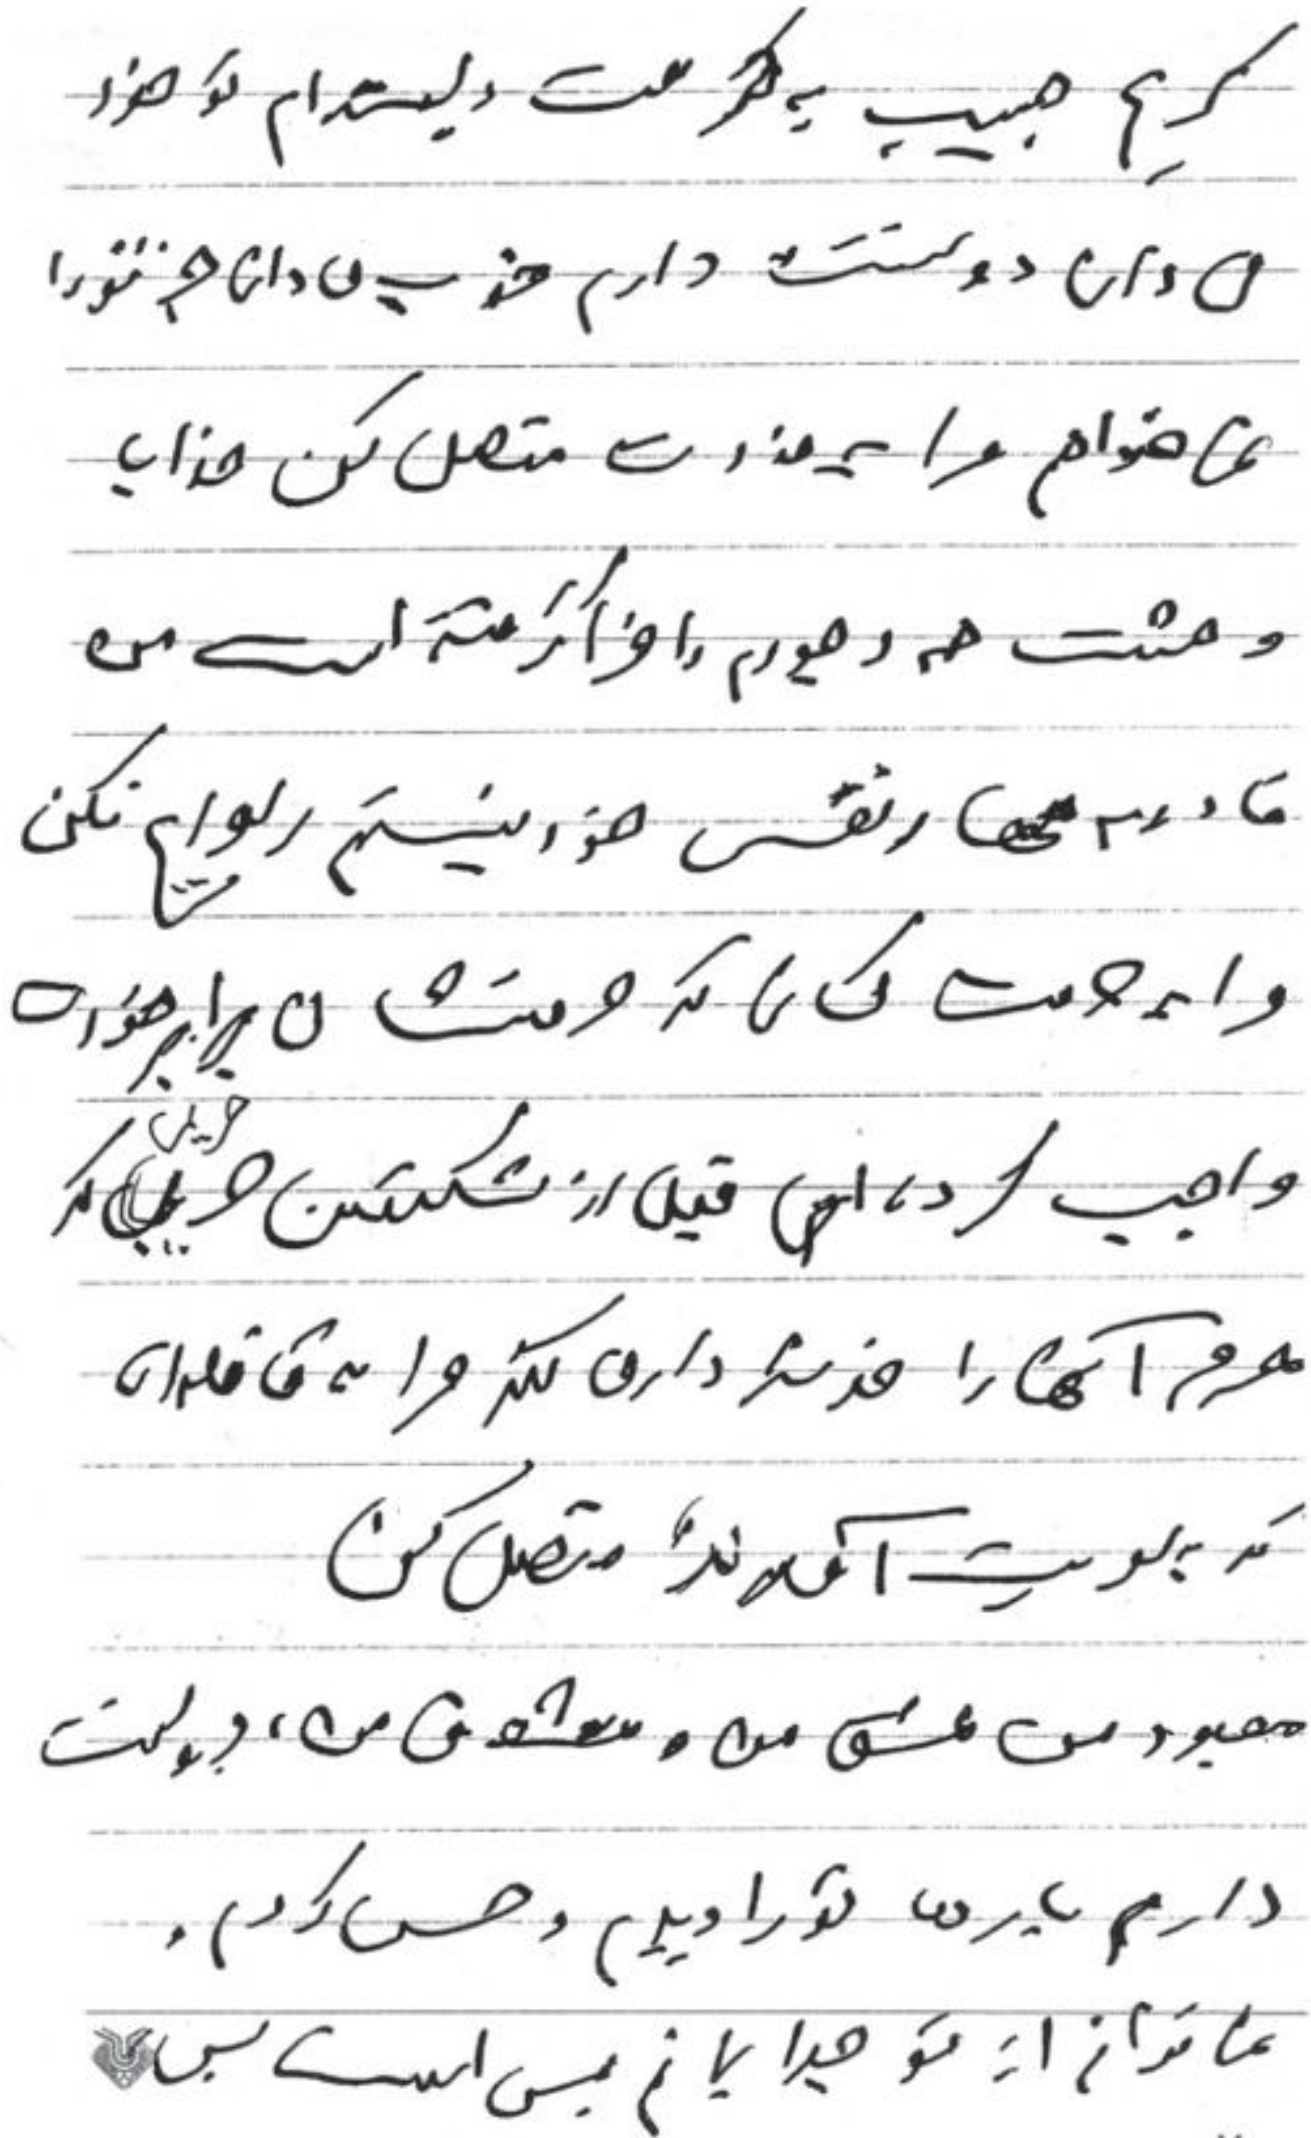 کریم حبیب به کرمت دلبسته‌ام تو خود
می دانی دوستت دارم خوب می دانی جز تو را
نمی خواهم مرا به خودت متصل کن خدایا
وحشت همه وجودم را فرا گرفته است من
قادر به مهار نفس خود نیستم رسوایم نکن
مرا به حرمت کسانی که حرمتشان را بر خودت
واجب کرده‌ای قبل از شکستن حریمی حریمی که
حرم آنها را خدشه دار می کند مرا به قافله‌ای
که به سویت آمده‌اند متصل کن
معبود من عشق من و معشوق من، دوستت
دارم بارها تو را دیدم و حس کردم و
نمی توانم از تو جدا بمانم بس است بس